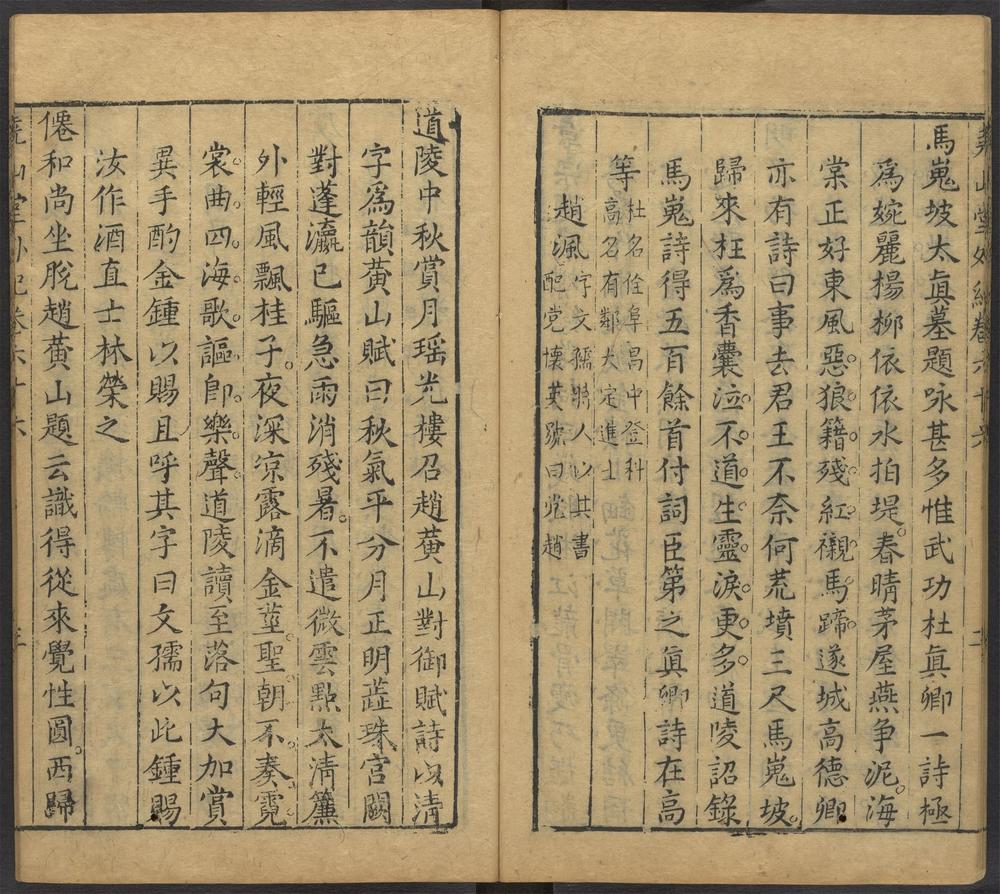 堯山堂外紀卷六十六 二
馬嵬坡太眞墓題咏甚多惟武功杜眞卿一詩極
爲婉麗楊柳依依水拍堤春晴茅屋燕争泥海
棠正好東風惡狼籍殘紅襯馬蹄遂城高德卿
亦有詩曰事去君王不奈何荒墳三尺馬嵬坡
歸來枉爲香囊泣不道生靈淚更多道陵詔錄
馬嵬詩得五百餘首付詞臣第之眞卿詩在高
等杜名佺阜昌中登科
高名有鄰大定進士
趙渢字文孺時人以其書
配党懷英號曰党趙
道陵中秋賞月瑶光樓召趙黃山對御賦詩以清
字爲韻黃山賦曰秋氣平分月正明蘂珠宮闕
對蓬瀛已驅急雨消殘暑不遣微雲點太清簾
外輕風飄桂子夜深凉露滴金莖聖朝不奏霓
裳曲四海歌謳卽樂聲道陵讀至落句大加賞
異手酌金鍾以賜且呼其字曰文孺以此鍾賜
汝作酒直士林榮之
僊和尚坐脫趙黃山題云識得從來覺性圓西歸
堯山堂外紀卷六十六